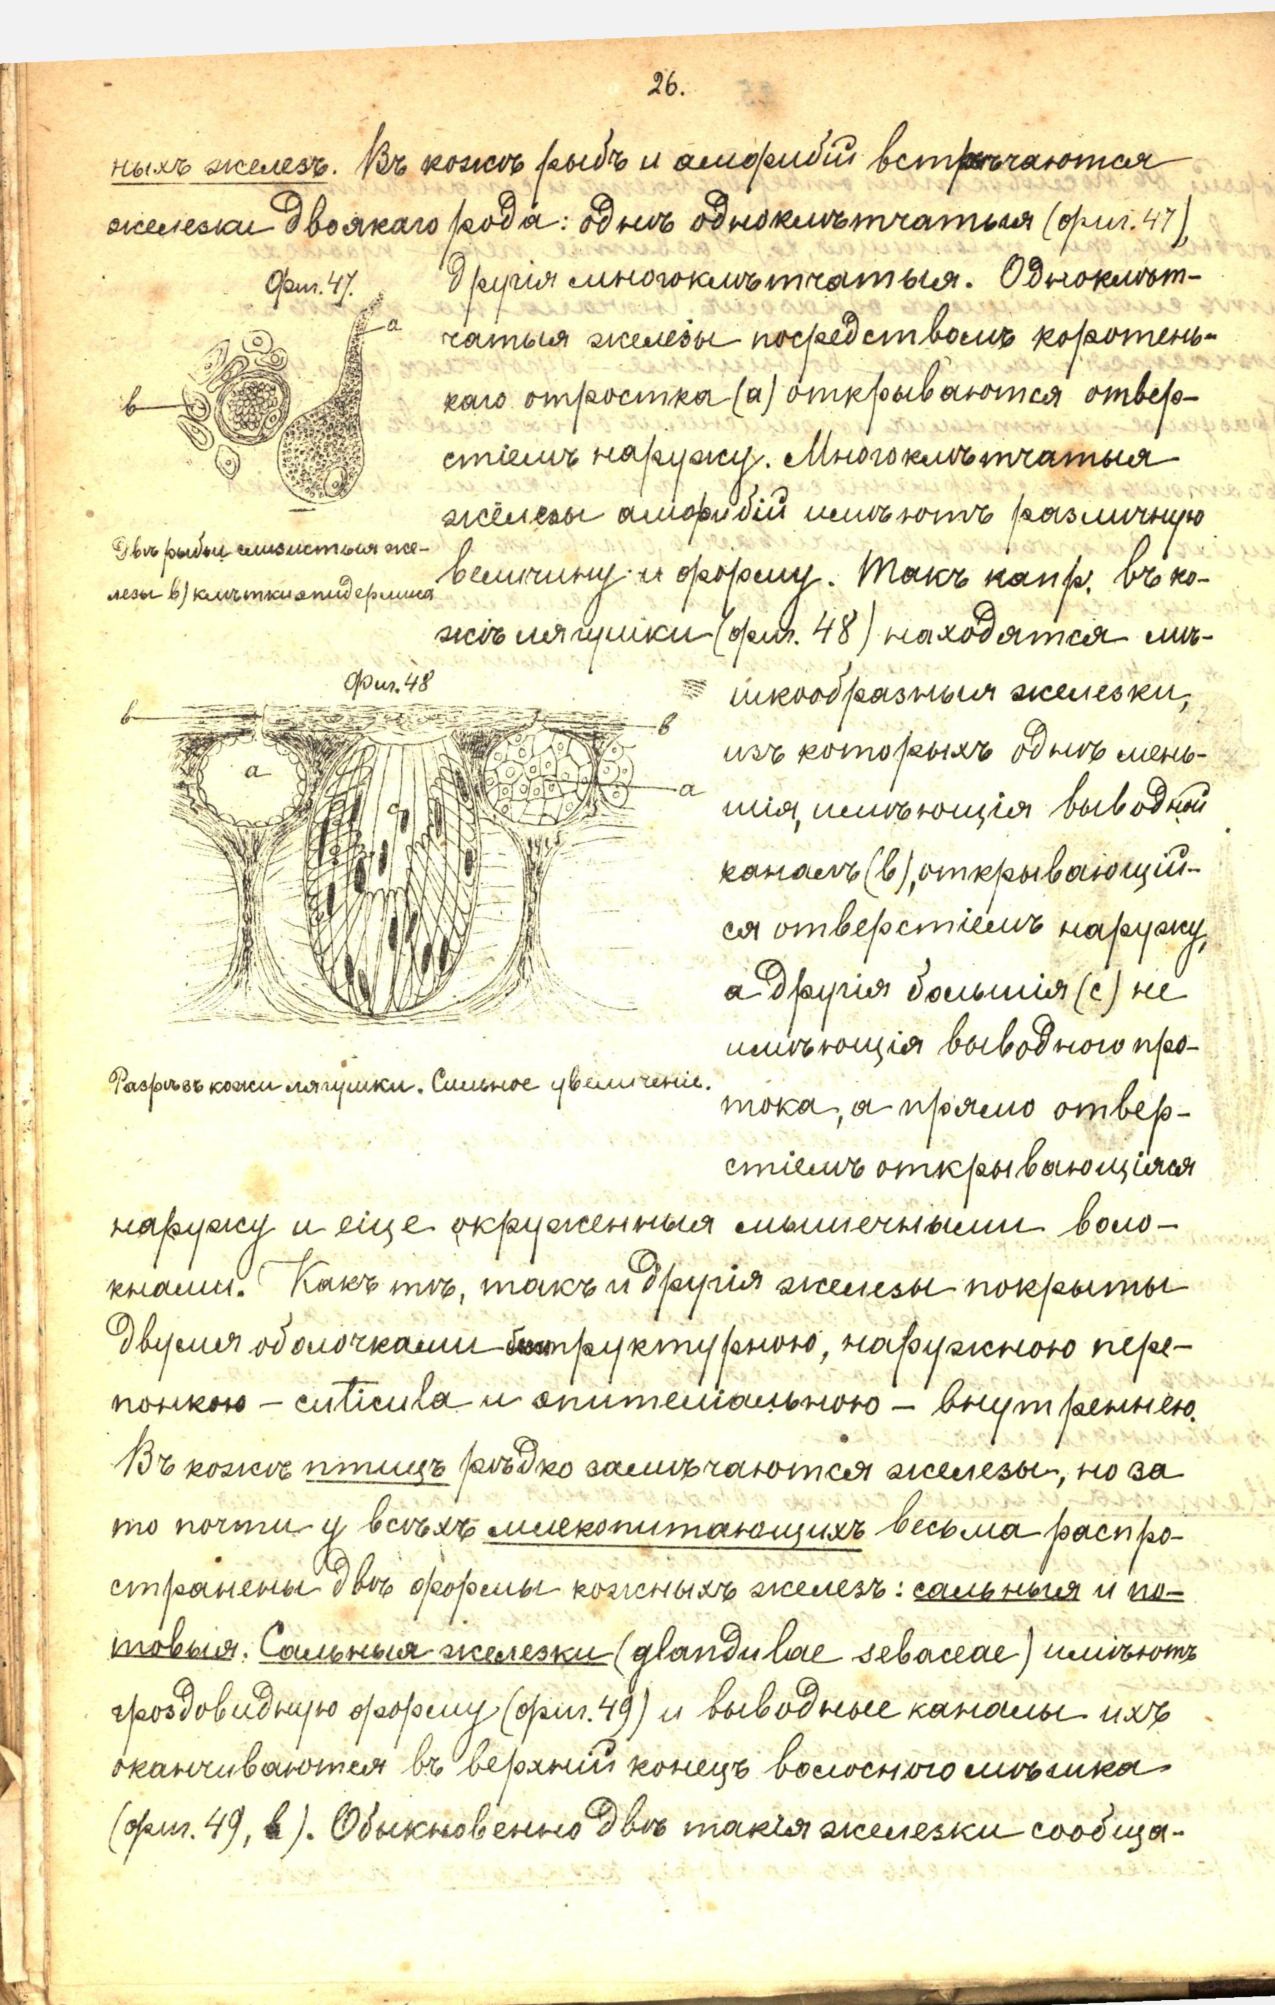 26.
ныхъ железъ. Въ кожѣ рыбъ и амфибій встрѣчаются
железки двоякаго рода: однѣ одноклѣтчатыя (фиг. 47),
другія многоклѣтчатыя. Одноклѣт-
чатыя железы посредствомъ коротень-
каго отростка (а) открываются отвер-
стіемъ наружу. Многоклѣтчатыя
железы амфибій имѣютъ различную
величину и форму. Такъ напр. въ ко-
жѣ лягушки (фиг. 48) находятся мѣ-
шкообразныя железки,
изъ которыхъ однѣ мень-
шія, имѣющія выводной
каналъ (в), открывающій-
ся отверстіемъ наружу,
а другія большія (с) не
имѣющія выводного про-
тока, а прямо отвер-
стіемъ открывающіяся
наружу и еще окруженныя мышечными воло-
кнами. Какъ тѣ, такъ и другія железы покрыты
двумя оболочками безструктурною, наружною пере-
понкою – cuticula и эпителіальною – внутреннею.
Въ кожѣ птицъ рѣдко замѣчаются железы, но за
то почти у всѣхъ млекопитающихъ весьма распро-
странены двѣ формы кожныхъ железъ: сальныя и по-
товыя. Сальныя железки (glandulae sebaceae) имѣютъ
гроздовидную форму (фиг. 49) и выводные каналы ихъ
оканчиваются въ верхній конецъ волосного мѣшка
(фиг. 49, в). Обыкновенно двѣ такія железки сообща-
Фиг. 47.
а
в
Двѣ рыбьи слизистыя же-
лезы в) клѣтки эпидермиса
Фиг. 48
в
в
а
с
а
Разрѣзъ кожи лягушки. Сильное увеличеніе.